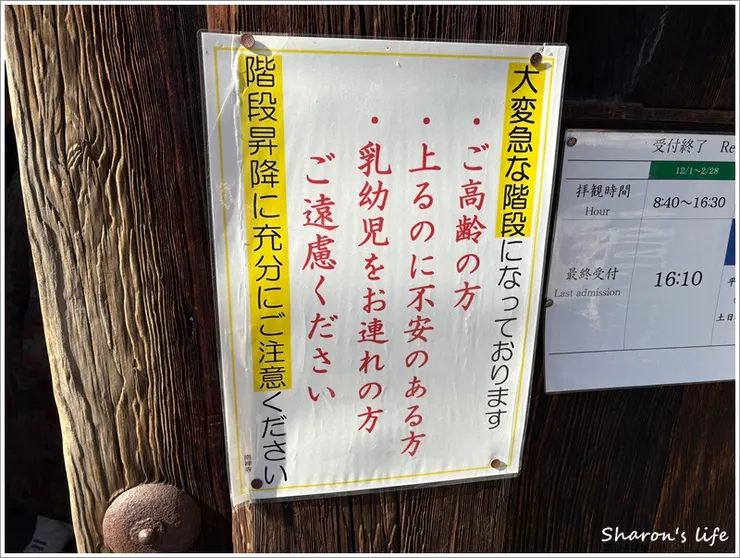 大変急な階段になっております
・ご高齢の方
・上るのに不安のある方
・乳幼児をお連れの方
ご遠慮ください
階段昇降に充分にご注意ください
南禅寺
受付終了 Re
12/1~2/28
拝観時間
Hour
8:40~16:30
最終受付
Last admission
16:10
平
土日
Sharon's life